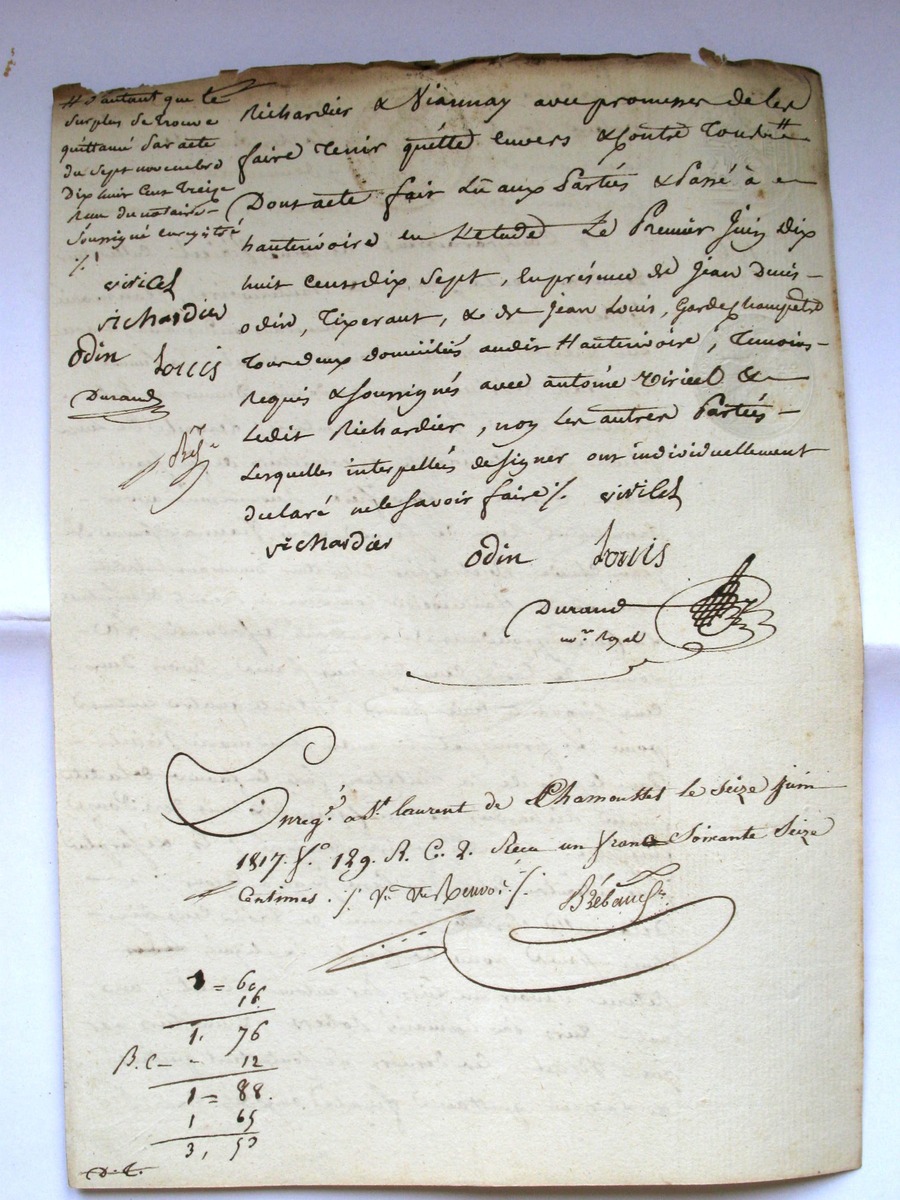 # D'autant que le
surplus se trouve
quittancé par acte
du sept novembre
dix huit cent treize
reçu du notaire
soussigné enregistré
./.
viricel
richardier
odin Louis
Durand
Richardier & Viannay avec promesse de les
faire tenir quitte envers & contre tous #
Dont acte fait lu aux Parties & Passé à
hauterivoire en L'etude Le Premier Juin dix
huit cent dix sept, en présence de Jean Denis
odin, Tixerant, & de Jean Louis, Garde Champetre
Tous deux domiciliés audit Hauterivoire, Temoins
requis & soussignés avec antoine viricel &
Ledit Richardier, non Les autres Parties
Lesquelles interpellées de signer ont individuellement
déclaré ne le savoir faire ./. viricel
richardier odin Louis
Durand
nore Royal
Enregé a St laurent de Chamousset le seize juin
1817. fo 129. R. C. 2. Reçu un franc Soixante Seize
Centimes ./. Un Renvoi ./.
1 = 60
16
1. 76
B. C - - 12
1 = 88.
1 65
3, 53